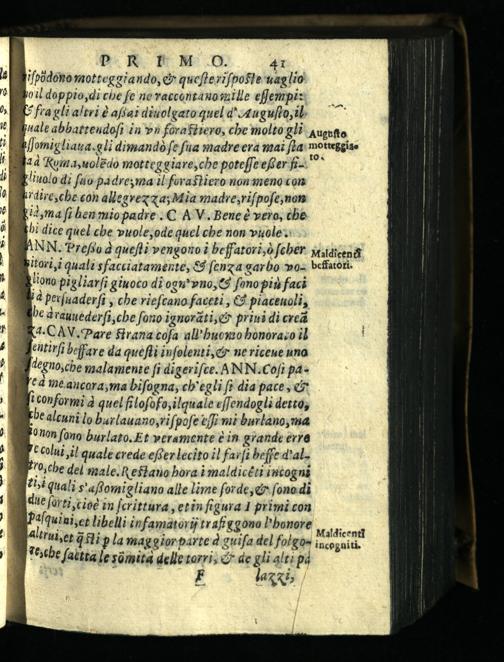 PRIMO. 41
rispõdono motteggiando, & queste risposte uaglio
no il doppio, di che se ne raccontano mille essempi:
& fra gli altri è assai diuolgato quel d'Augusto, il
quale abbattendosi in vn forastiero, che molto gli
assomigliaua. gli dimandò se sua madre era mai sta
ta à Roma, uolẽdo motteggiare, che potesse esser fi-
gliuolo di suo padre; ma il forastiero non meno con
ardire, che con allegrezza; Mia madre, rispose, non
già, ma si ben mio padre. CAV. Bene è vero, che
chi dice quel che vuole, ode quel che non vuole.
ANN. Presso à questi vengono i beffatori, ò scher
nitori, i quali sfacciatamente, & senza garbo vo-
gliono pigliarsi giuoco di ogn'vno, & sono più faci
li à persuadersi, che riescano faceti, & piaceuoli,
che à rauuedersi, che sono ignorãti, & priui di creã
za. CAV. Pare strana cosa all'huomo honorato il
sentirsi beffare da questi insolenti, & ne riceue uno
sdegno, che malamente si digerisce. ANN. Cosi pa-
re à me ancora, ma bisogna, ch'egli si dia pace, &
si conformi à quel filosofo, ilquale essendogli detto,
che alcuni lo burlauano, rispose essi mi burlano, ma
io non sono burlato. Et veramente è in grande erro
re colui, il quale crede esser lecito il farsi beffe d'al-
tro, che del male. Restano hora i maldicẽti incogni
ti, i quali s'assomigliano alle lime sorde, & sono di
due sorti, cioè in scrittura, et in figura I primi con
pasquini, et libelli infamatorij trafiggono l'honore
altrui, et q̃sti p la maggior parte à guisa del folgo-
re, che saetta le sõmità delle torri, & de gli alti pa
F lazzi,
Augusto
motteggia-
to.
Maldicenti
beffatori.
Maldicenti
incogniti.